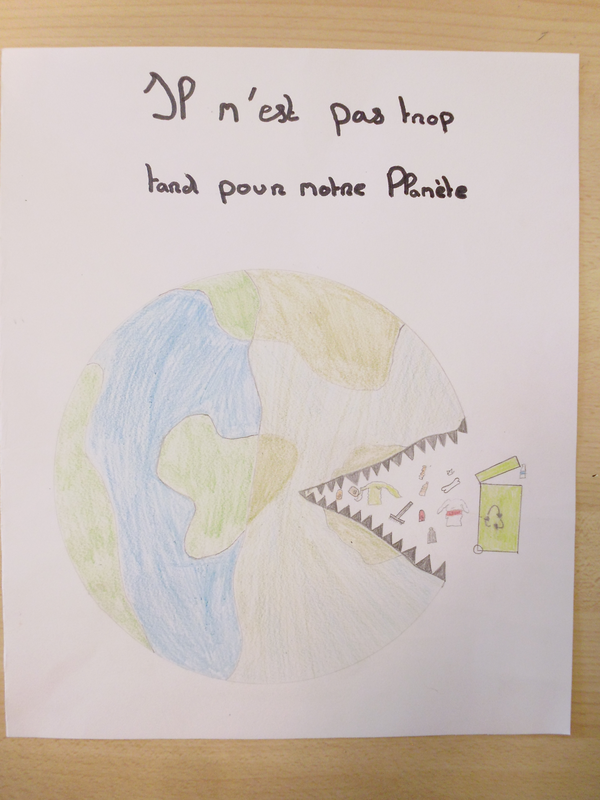 Il n'est pas trop
tard pour notre Planète